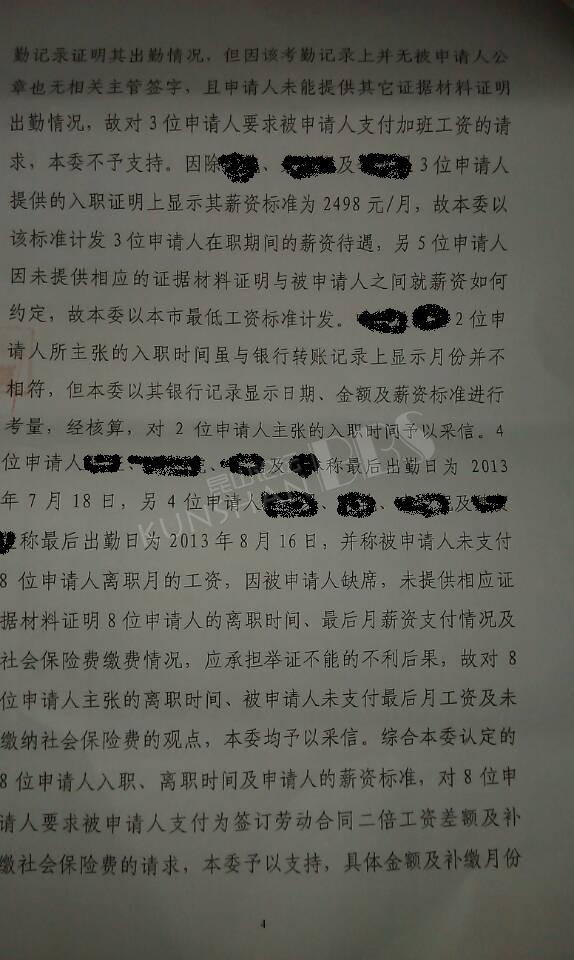 勤记录证明其出勤情况，但因该考勤记录上并无被申请人公
章也无相关主管签字，且申请人未能提供其它证据材料证明
出勤情况，故对3位申请人要求被申请人支付加班工资的请
求，本委不予支持。因除、及3位申请人
提供的入职证明上显示其薪资标准为2498元/月，故本委以
该标准计发3位申请人在职期间的薪资待遇，另5位申请人
因未提供相应的证据材料证明与被申请人之间就薪资如何
约定，故本委以本市最低工资标准计发。2位申
请人所主张的入职时间虽与银行转账记录上显示月份并不
相符，但本委以其银行记录显示日期、金额及薪资标准进行
考量，经核算，对2位申请人主张的入职时间予以采信。4
位申请人、、及称最后出勤日为2013
年7月18日，另4位申请人、、及
称最后出勤日为2013年8月16日，并称被申请人未支付
8位申请人离职月的工资，因被申请人缺席，未提供相应证
据材料证明8位申请人的离职时间、最后月薪资支付情况及
社会保险费缴费情况，应承担举证不能的不利后果，故对8
位申请人主张的离职时间、被申请人未支付最后月工资及未
缴纳社会保险费的观点，本委均予以采信。综合本委认定的
8位申请人入职、离职时间及申请人的薪资标准，对8位申
请人要求被申请人支付为签订劳动合同二倍工资差额及补
缴社会保险费的请求，本委予以支持，具体金额及补缴月份
4
KUNSHAN BBS